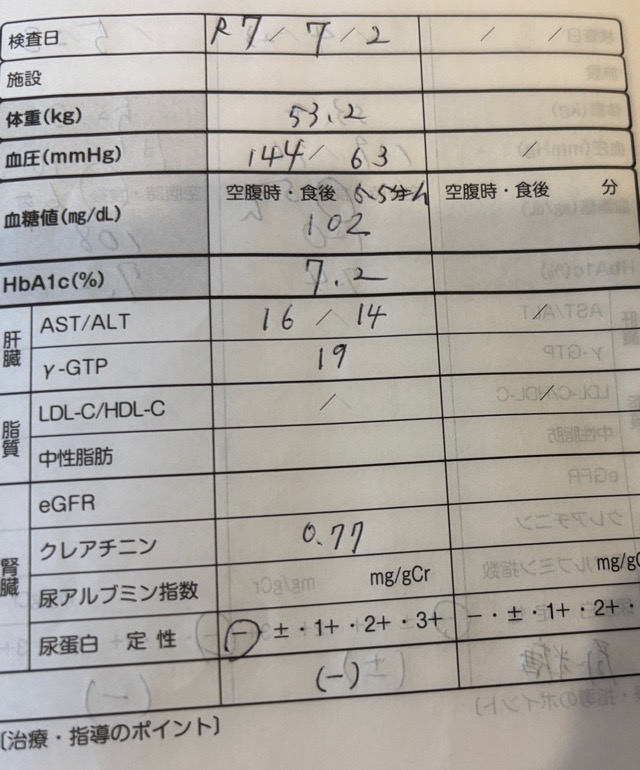 検査日 R7/7/2 / /
施設
体重(kg) 53.2
血圧(mmHg) 144/63 /
血糖値(mg/dL) 空腹時・食後 5.5分h 空腹時・食後 分
102
HbA1c(%) 7.2
肝臓 AST/ALT 16/14 /
γ-GTP 19
脂質 LDL-C/HDL-C / /
中性脂肪
腎臓 eGFR
クレアチニン 0.77
尿アルブミン指数 mg/gCr mg/gC
尿蛋白 定性 -・±・1+・2+・3+ -・±・1+・2+・
(-)
〔治療・指導のポイント〕